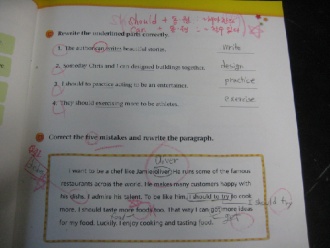 should + 동.원 :
can + 동.원 :
Rewrite the underlined parts correctly.
1. The author can writes beautiful stories. write
2. Someday Chris and I can designed buildings together. design
3. I should to practice acting to be an entertainer. practice
4. They should exercising more to be athletes. exercise
Correct the five mistakes and rewrite the paragraph.
Oliver
I want to be a chef like Jamie oliver. He runs some of the famous
restaurants across the world. He makes many customers happy with
his dishs. I admire his talent. To be like him, I should to try to cook
should try
more. I should taste more foods too. That way I can got more ideas
get
for my food. Luckily, I enjoy cooking and tasting food.